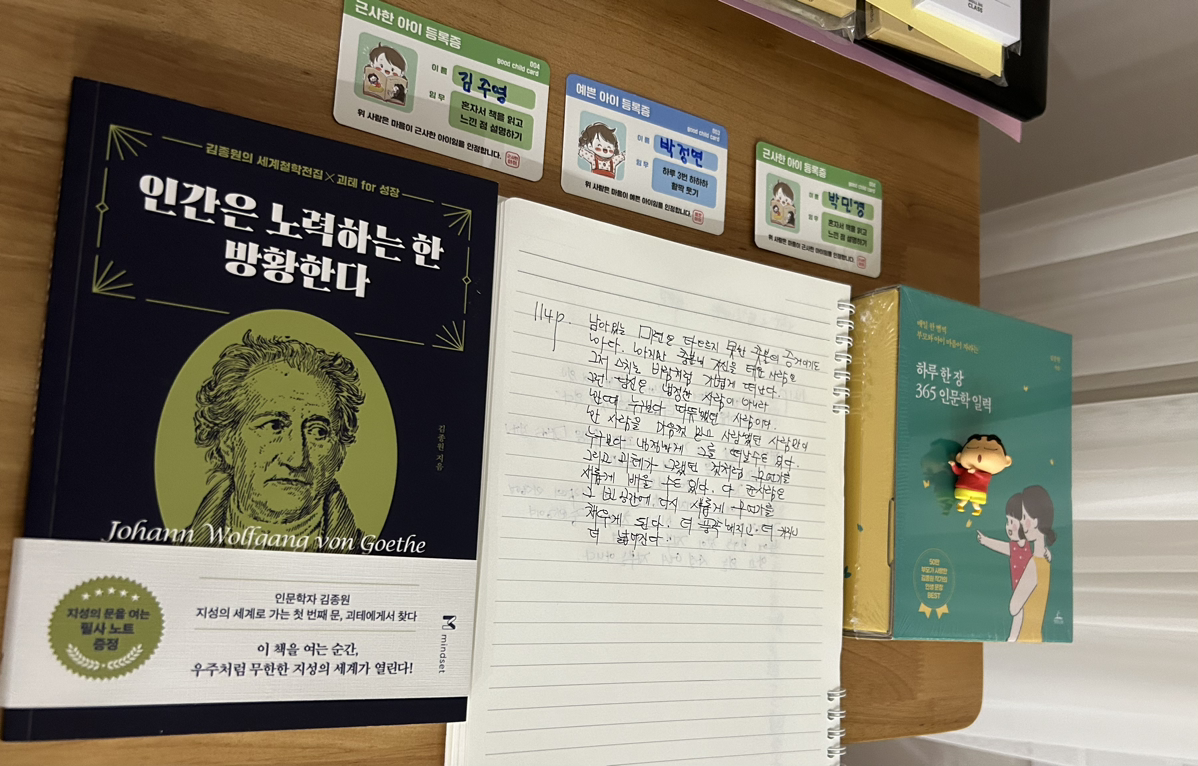 근사한 아이 등록증
004
good child card
이름 김주영
임무 혼자서 책을 읽고
느낀 점 설명하기
위 사람은 마음이 근사한 아이임을 인정합니다.
예쁜 아이 등록증
003
good child card
이름 박정연
임무 하루 3번 하하하
활짝 웃기
위 사람은 마음이 예쁜 아이임을 인정합니다.
근사한 아이 등록증
004
good child card
이름 박민경
임무 혼자서 책을 읽고
느낀 점 설명하기
위 사람은 마음이 근사한 아이임을 인정합니다.
CLASS
김종원의 세계철학전집×괴테 for 성장
인간은 노력하는 한
방황한다
김종원 지음
Johann Wolfgang von Goethe
지성의 문을 여는
필사 노트
증정
인문학자 김종원
지성의 세계로 가는 첫 번째 문, 괴테에게서 찾다
이 책을 여는 순간,
우주처럼 무한한 지성의 세계가 열린다!
mindset
114p. 남아있는 미련은 다다르지 못한
하지만 자신을 다한 사람은
그저 스치는 바람처럼 가볍게 떠난다.
그런 당신은 냉정한 사람이 아니라
한때 누구보다 따뜻했던 사람이다.
한 사람을 마음껏 믿고 사랑했던 사람만이
누구보다 냉정하게 그를 떠날 수도 있다.
그리고 괴테가 그랬던 것처럼 무언가를
새롭게 배울 수도 있다. 다 쏟은
그 빈 공간에 다시 새롭게 무언가를
채우게 된다. 더
더 넓어진다.
매일 한 명씩
부모와 아이 마음이 자라는
하루 한 장
365 인문학 일력
김종원
50만
부모가 사랑한
김종원 작가의
인생 문장
BEST